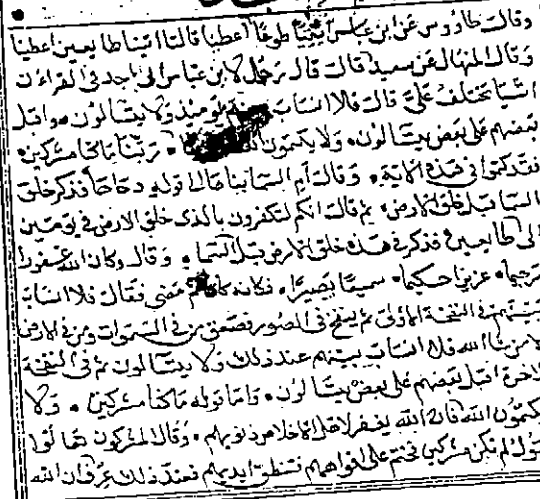 وقال طاووس عن ابن عباس ائتيا طوعا اعطيا قالتا اتينا طايعين اعطينا
وقال المنهال عن سعيد قال قال رجل لابن عباس اني اجد في القرءان
اشيا تختلف علي قال فلا انساب يوميذ ولا يتسالون واقبل
بعضهم على بعض يتسالون ولا يكتمون الله ربنا ما كنا مشركين
فقد كتموا في هذه الاية وقال ام السما بناها الى قوله دحاها فذكر خلق
السما قبل خلق الارض ثم قال انكم لتكفرون بالذي خلق الارض في يومين
الى طايعين فذكر في هذه خلق الارض قبل السما وقال وكان الله غفورا
رحيما عزيزا حكيما سميعا بصيرا فكانه كان ثم مضى فقال فلا انساب
بينهم في النفخة الاولى ثم ينفخ في الصور فصعق من في السموات ومن في الارض
الا من شا الله فلا انساب بينهم عند ذلك ولا يتسالون ثم في النفخة
الاخرة اقبل بعضهم على بعض يتسالون واما قوله ما كنا مشركين ولا
يكتمون الله فان الله يغفر لاهل الاخلاص ذنوبهم وقال المشركون تعالوا
نقول لم نكن مشركين فختم على افواههم فتنطق ايديهم فعند ذلك عرف ان الله